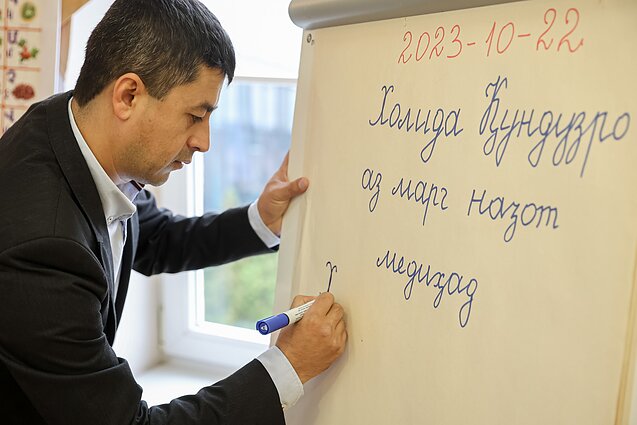 2023-10-22
Холида Қундузро
аз марг наҷот
медиҳад